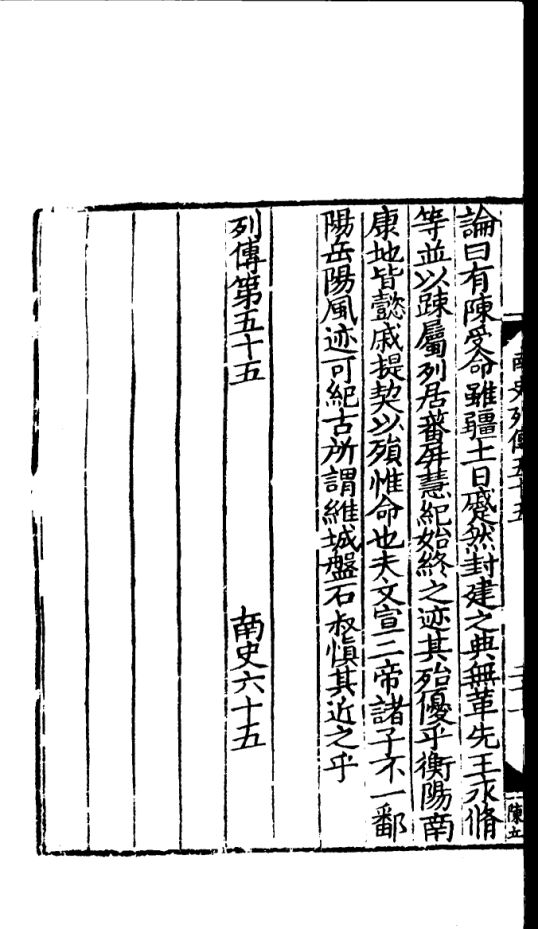 南史列傳五十五
論曰有陳受命雖疆土日蹙然封建之典無革先王永脩
等並以踈屬列居蕃屏慧紀始終之迹其殆優乎衡陽南
康地皆懿戚提契以殞惟命也夫文宣二帝諸子不一鄱
陽岳陽風迹可紀古所謂維城盤石叔慎其近之乎
列傳第五十五 南史六十五